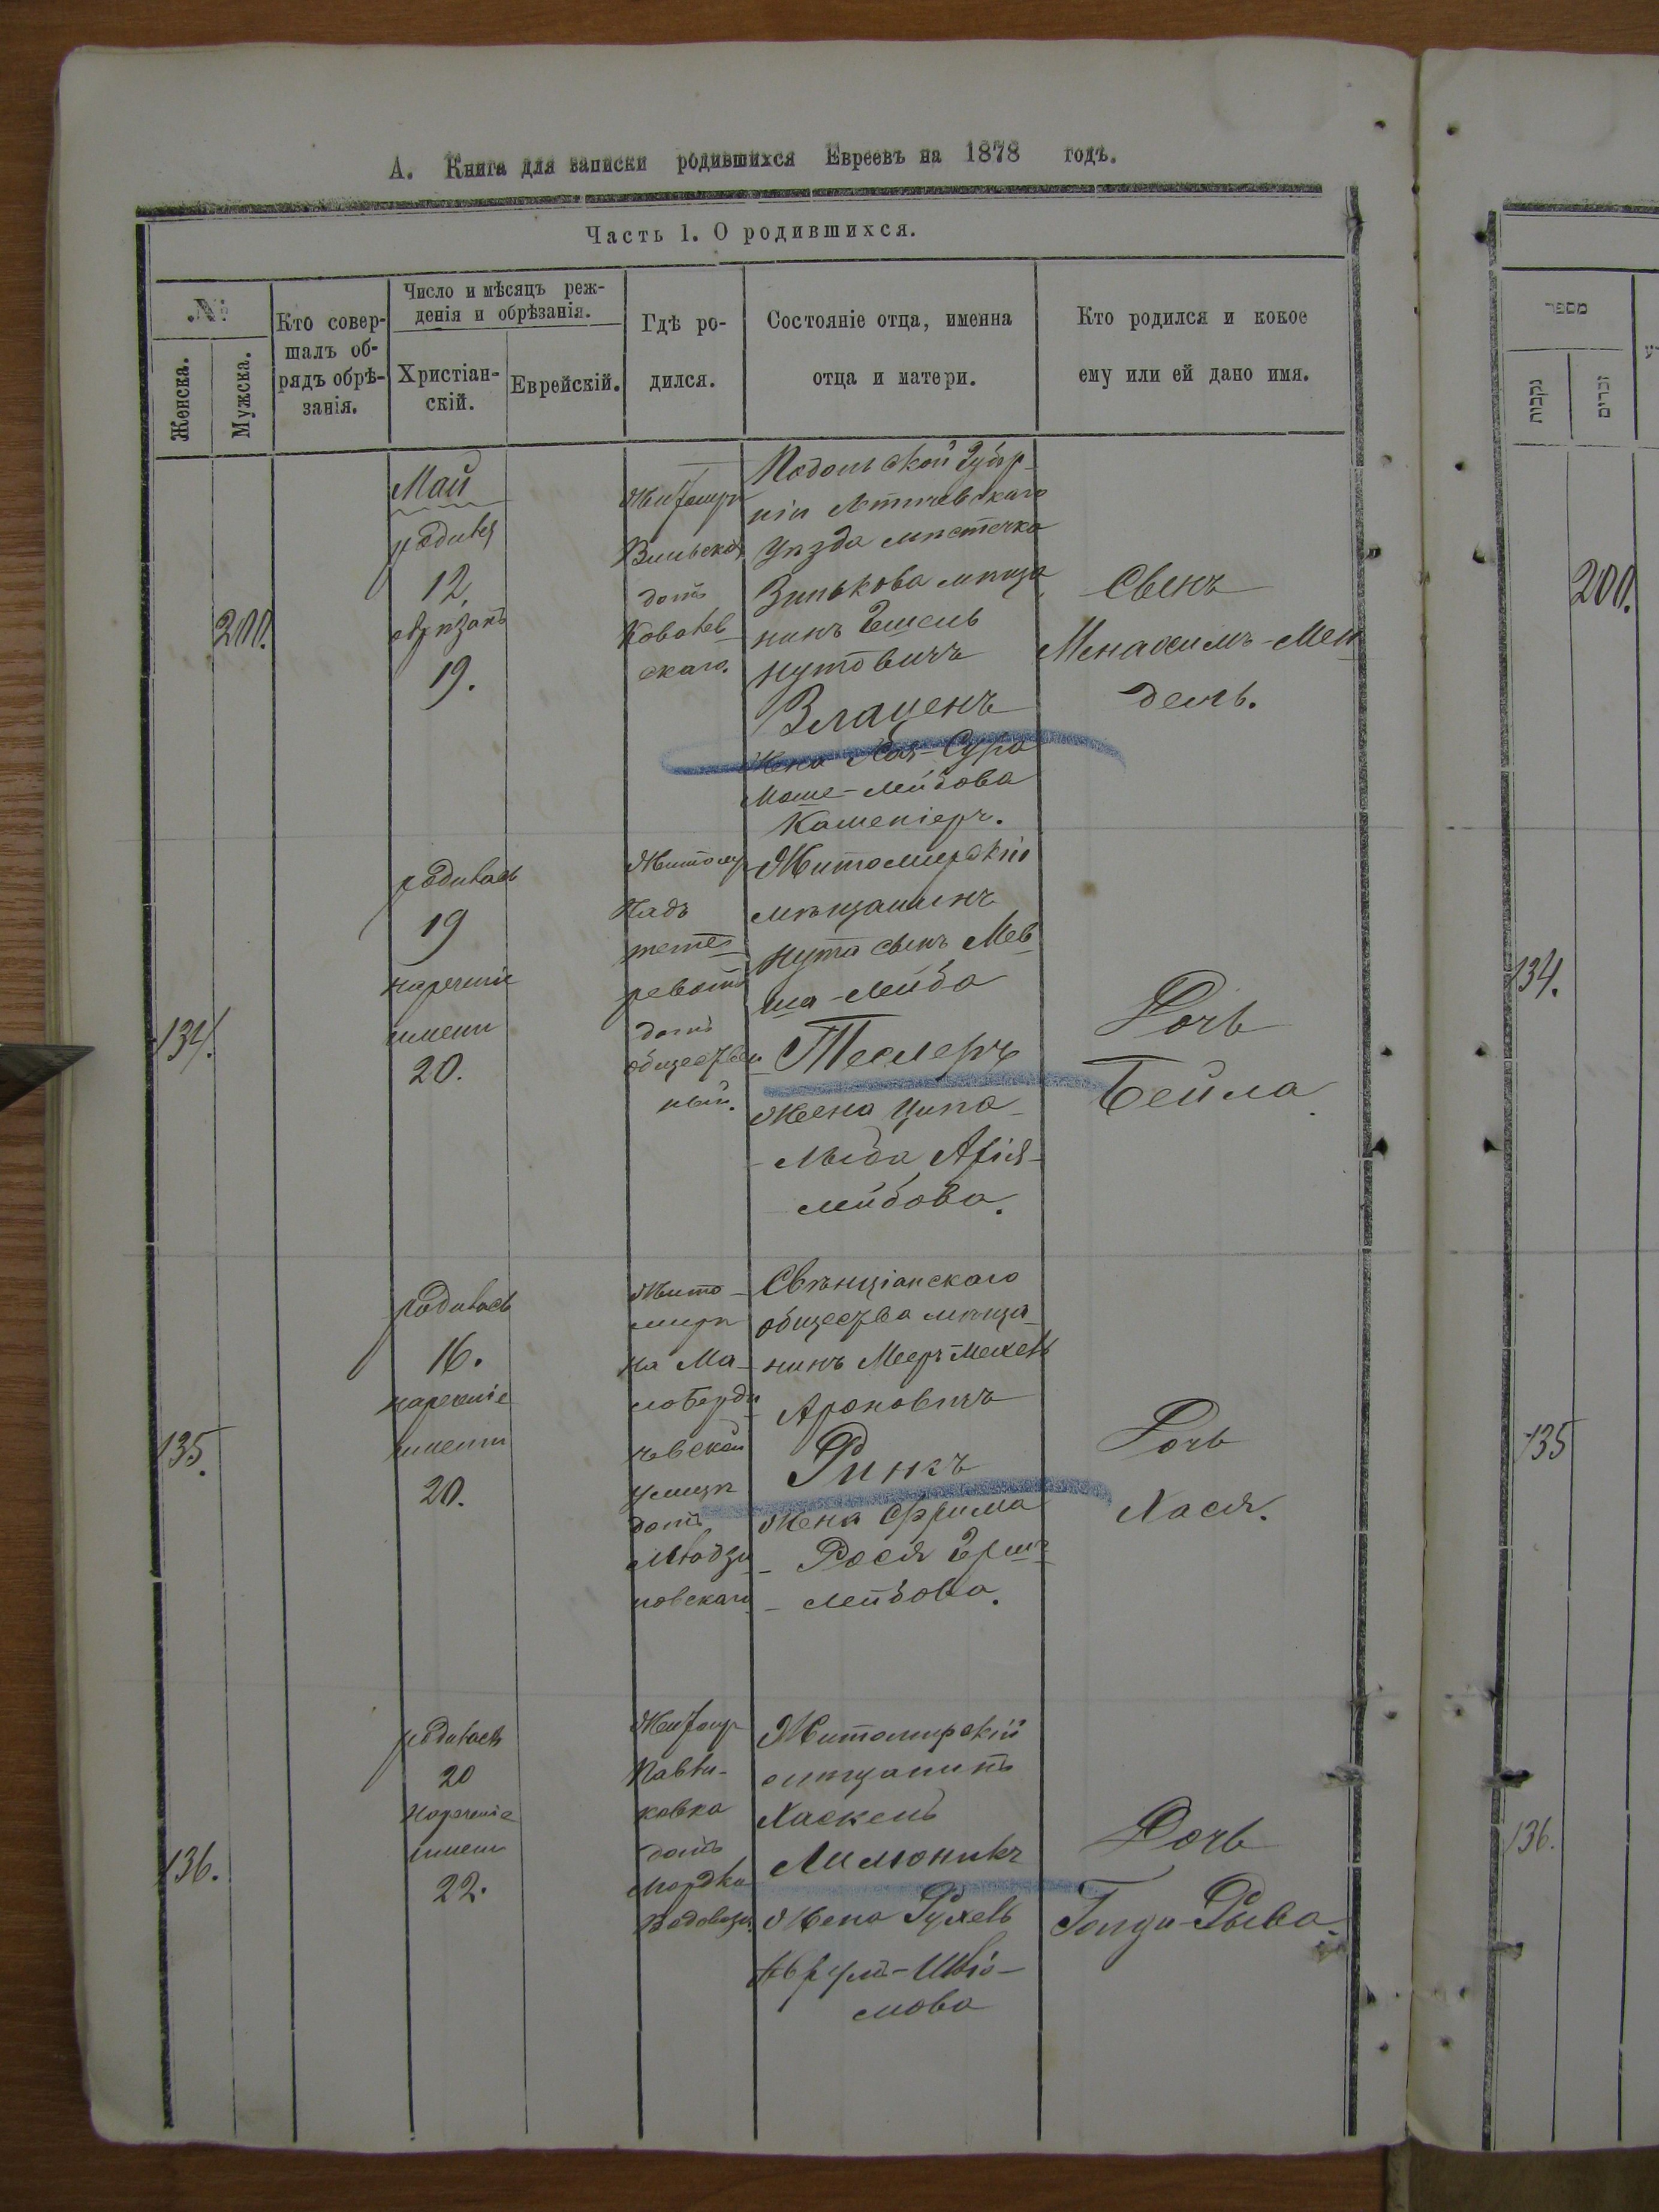 А. Книга для записки родившихся Евреевъ на 1878 годъ.
Часть 1. О родившихся.
№
Женска.
Мужска.
Кто совер-
шалъ об-
рядъ обрѣ-
занія.
Число и мѣсяцъ реж-
денія и обрѣзанія.
Христіан-
скій.
Еврейскій.
Гдѣ ро-
дился.
Состояніе отца, именна
отца и матери.
Кто родился и кокое
ему или ей дано имя.
200.
Май
родился
12.
обрѣзанъ
19.
Житомиръ
Вильская
домъ
Ковалев-
скаго.
Подольской Губер-
ніи Летичевскаго
Уѣзда мѣстечка
Зинькова мѣща
нинъ Гешель
Нутовичъ
Злаценъ
Жена Хая-Сура
Моше-Лейбова
Сынъ
Менахимъ-Мен
дель.
134.
родилась
19
нареченіе
имени
20.
Житомир
Надъ
тете-
ревомъ
домъ
обществен
ный.
Житомирскій
мѣщанинъ
Нута сынъ Мев
ша-Лейба
Теслеръ
Жена Ципа-
Лейбова.
Дочь
Бейла
135.
родилась
16.
нареченіе
имени
20.
Жито-
миръ
на Ма-
лобердн
чевской
улицѣ
домъ
Свѣнціанскаго
общества мѣща-
нинъ Мееръ Михель
Ароновичъ
Ринкъ
Жена Фрима
Рося Герш-
Лейбова.
Дочь
Хася.
136.
родилась
20
нареченіе
имени
22.
Житомир
Павли-
ковка
домъ
Мордка
Житомирскій
мѣщанинъ
Хаскель
Лимоникъ
Жена Рухель
Аврумъ-Шлио-
мова
Дочь
Голда-Рыва
מספר
נקבות
זכרים
200.
134.
135
136.